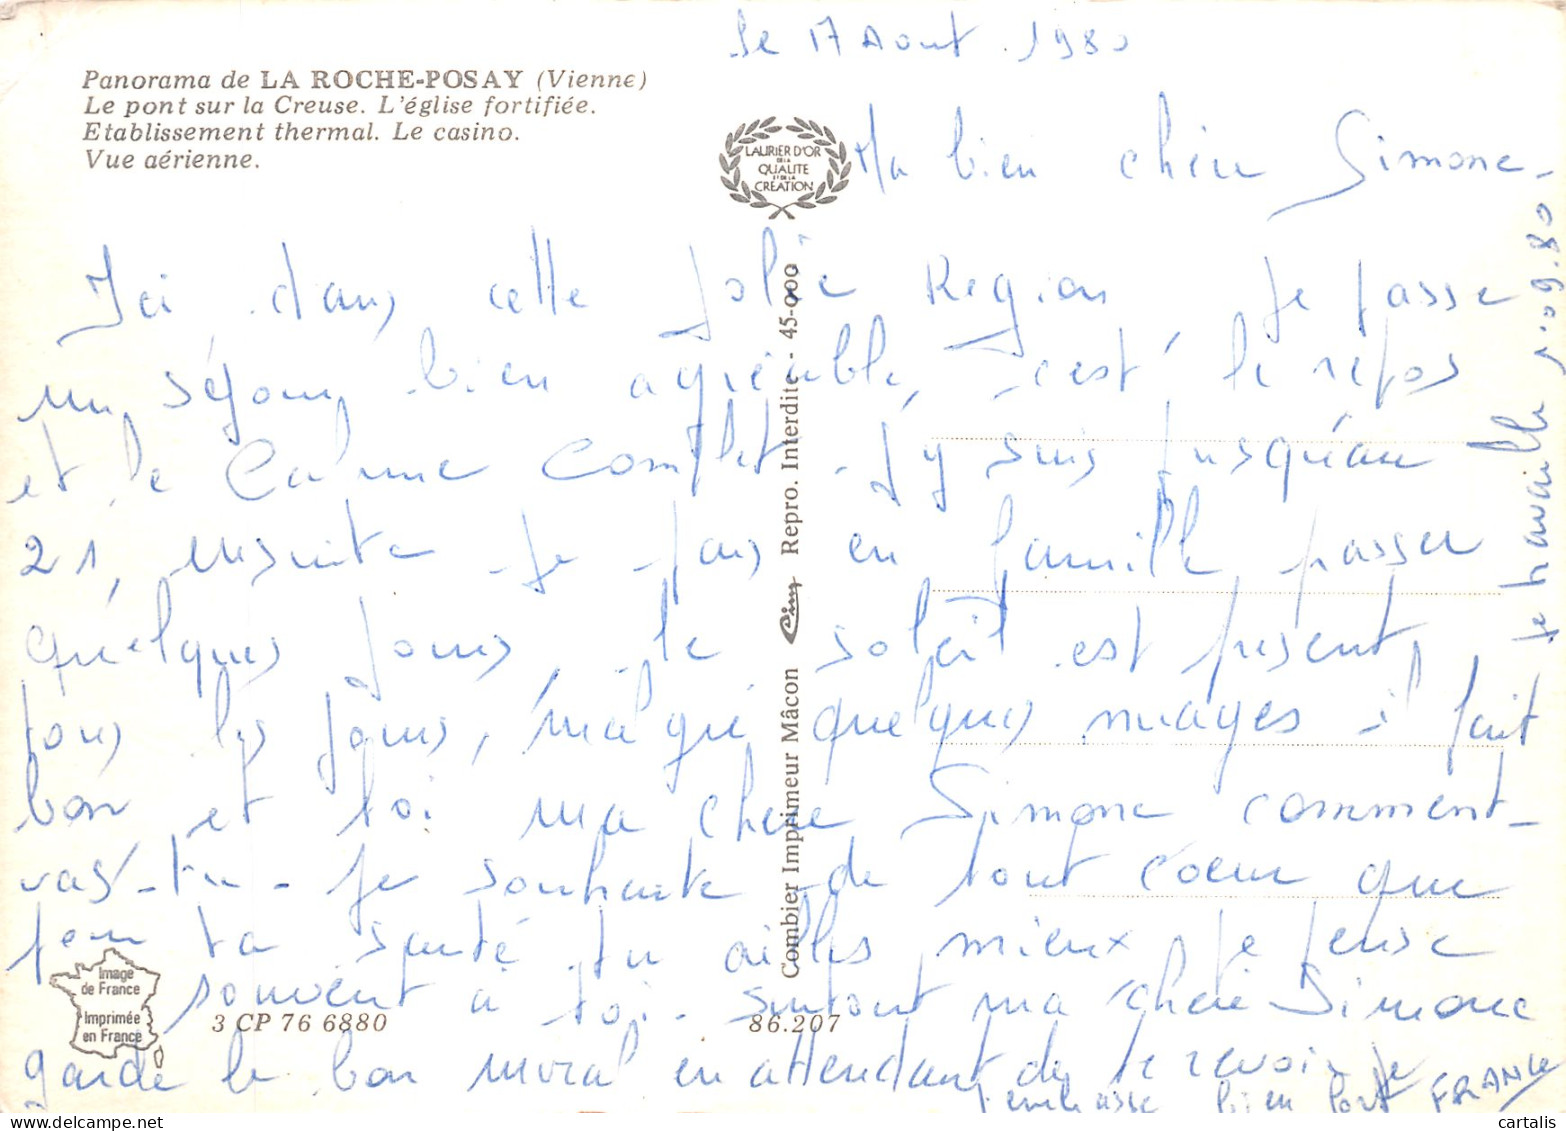 le 17 Aout 1980
Panorama de LA ROCHE-POSAY (Vienne)
Le pont sur la Creuse. L'église fortifiée.
Etablissement thermal. Le casino.
Vue aérienne.
LAURIER D'OR
DE LA
QUALITE
ET DE LA
CRÉATION
Ma bien chère Simone -
Ici dans cette jolie Région je passe
un séjour bien agréable, c'est le repos
et le Calme Complet. J'y suis jusqu'au
21, ensuite je vais en famille passer
quelques jours, le soleil est présent
tous les jours, malgré quelques nuages il fait
bon et toi ma chère Simone comment
vas-tu - je souhaite de tout coeur que
pour ta santé tu ailles mieux, je pense
souvent à toi. surtout ma chère Simone
garde le bon moral en attendant de te revoir je
t'embrasse bien fort FRANCE
je travaille 1.09.80
Combier Imprimeur Mâcon Cim Repro. Interdite - 45-000
Image
de France
Imprimée
en France
3 CP 76 6880
86.207
cartalis